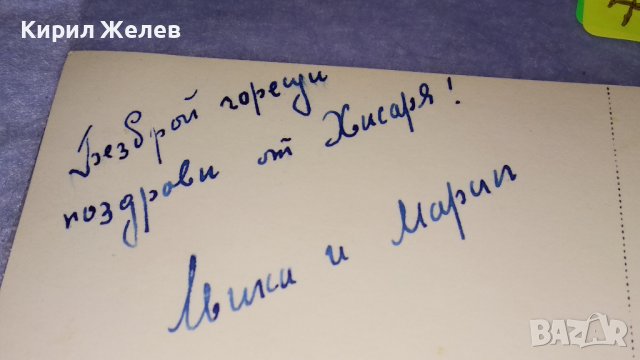 Кирил Желев
Безброй горещи
поздрави от Хисаря!
Мики и Марин
BAZAR